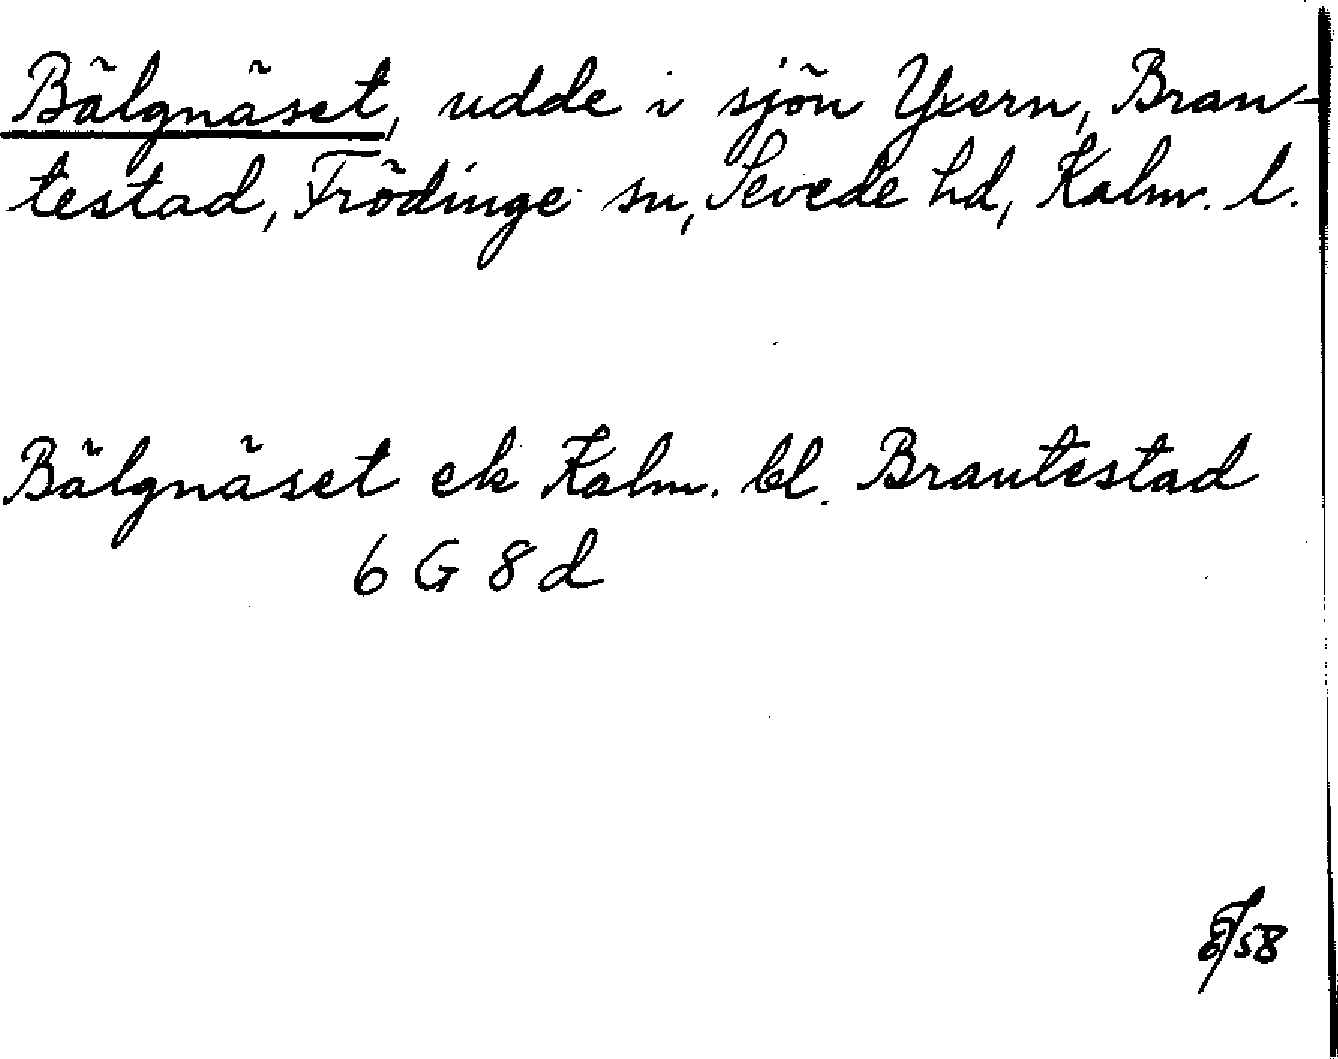 Bälgnäset, udde i sjön Yxern, Bran-
testad, Frödinge sn, Sevede hd, Kalm. l.
Bälgnäset ek Kalm. bl. Brantestad
6 G 8 d
58